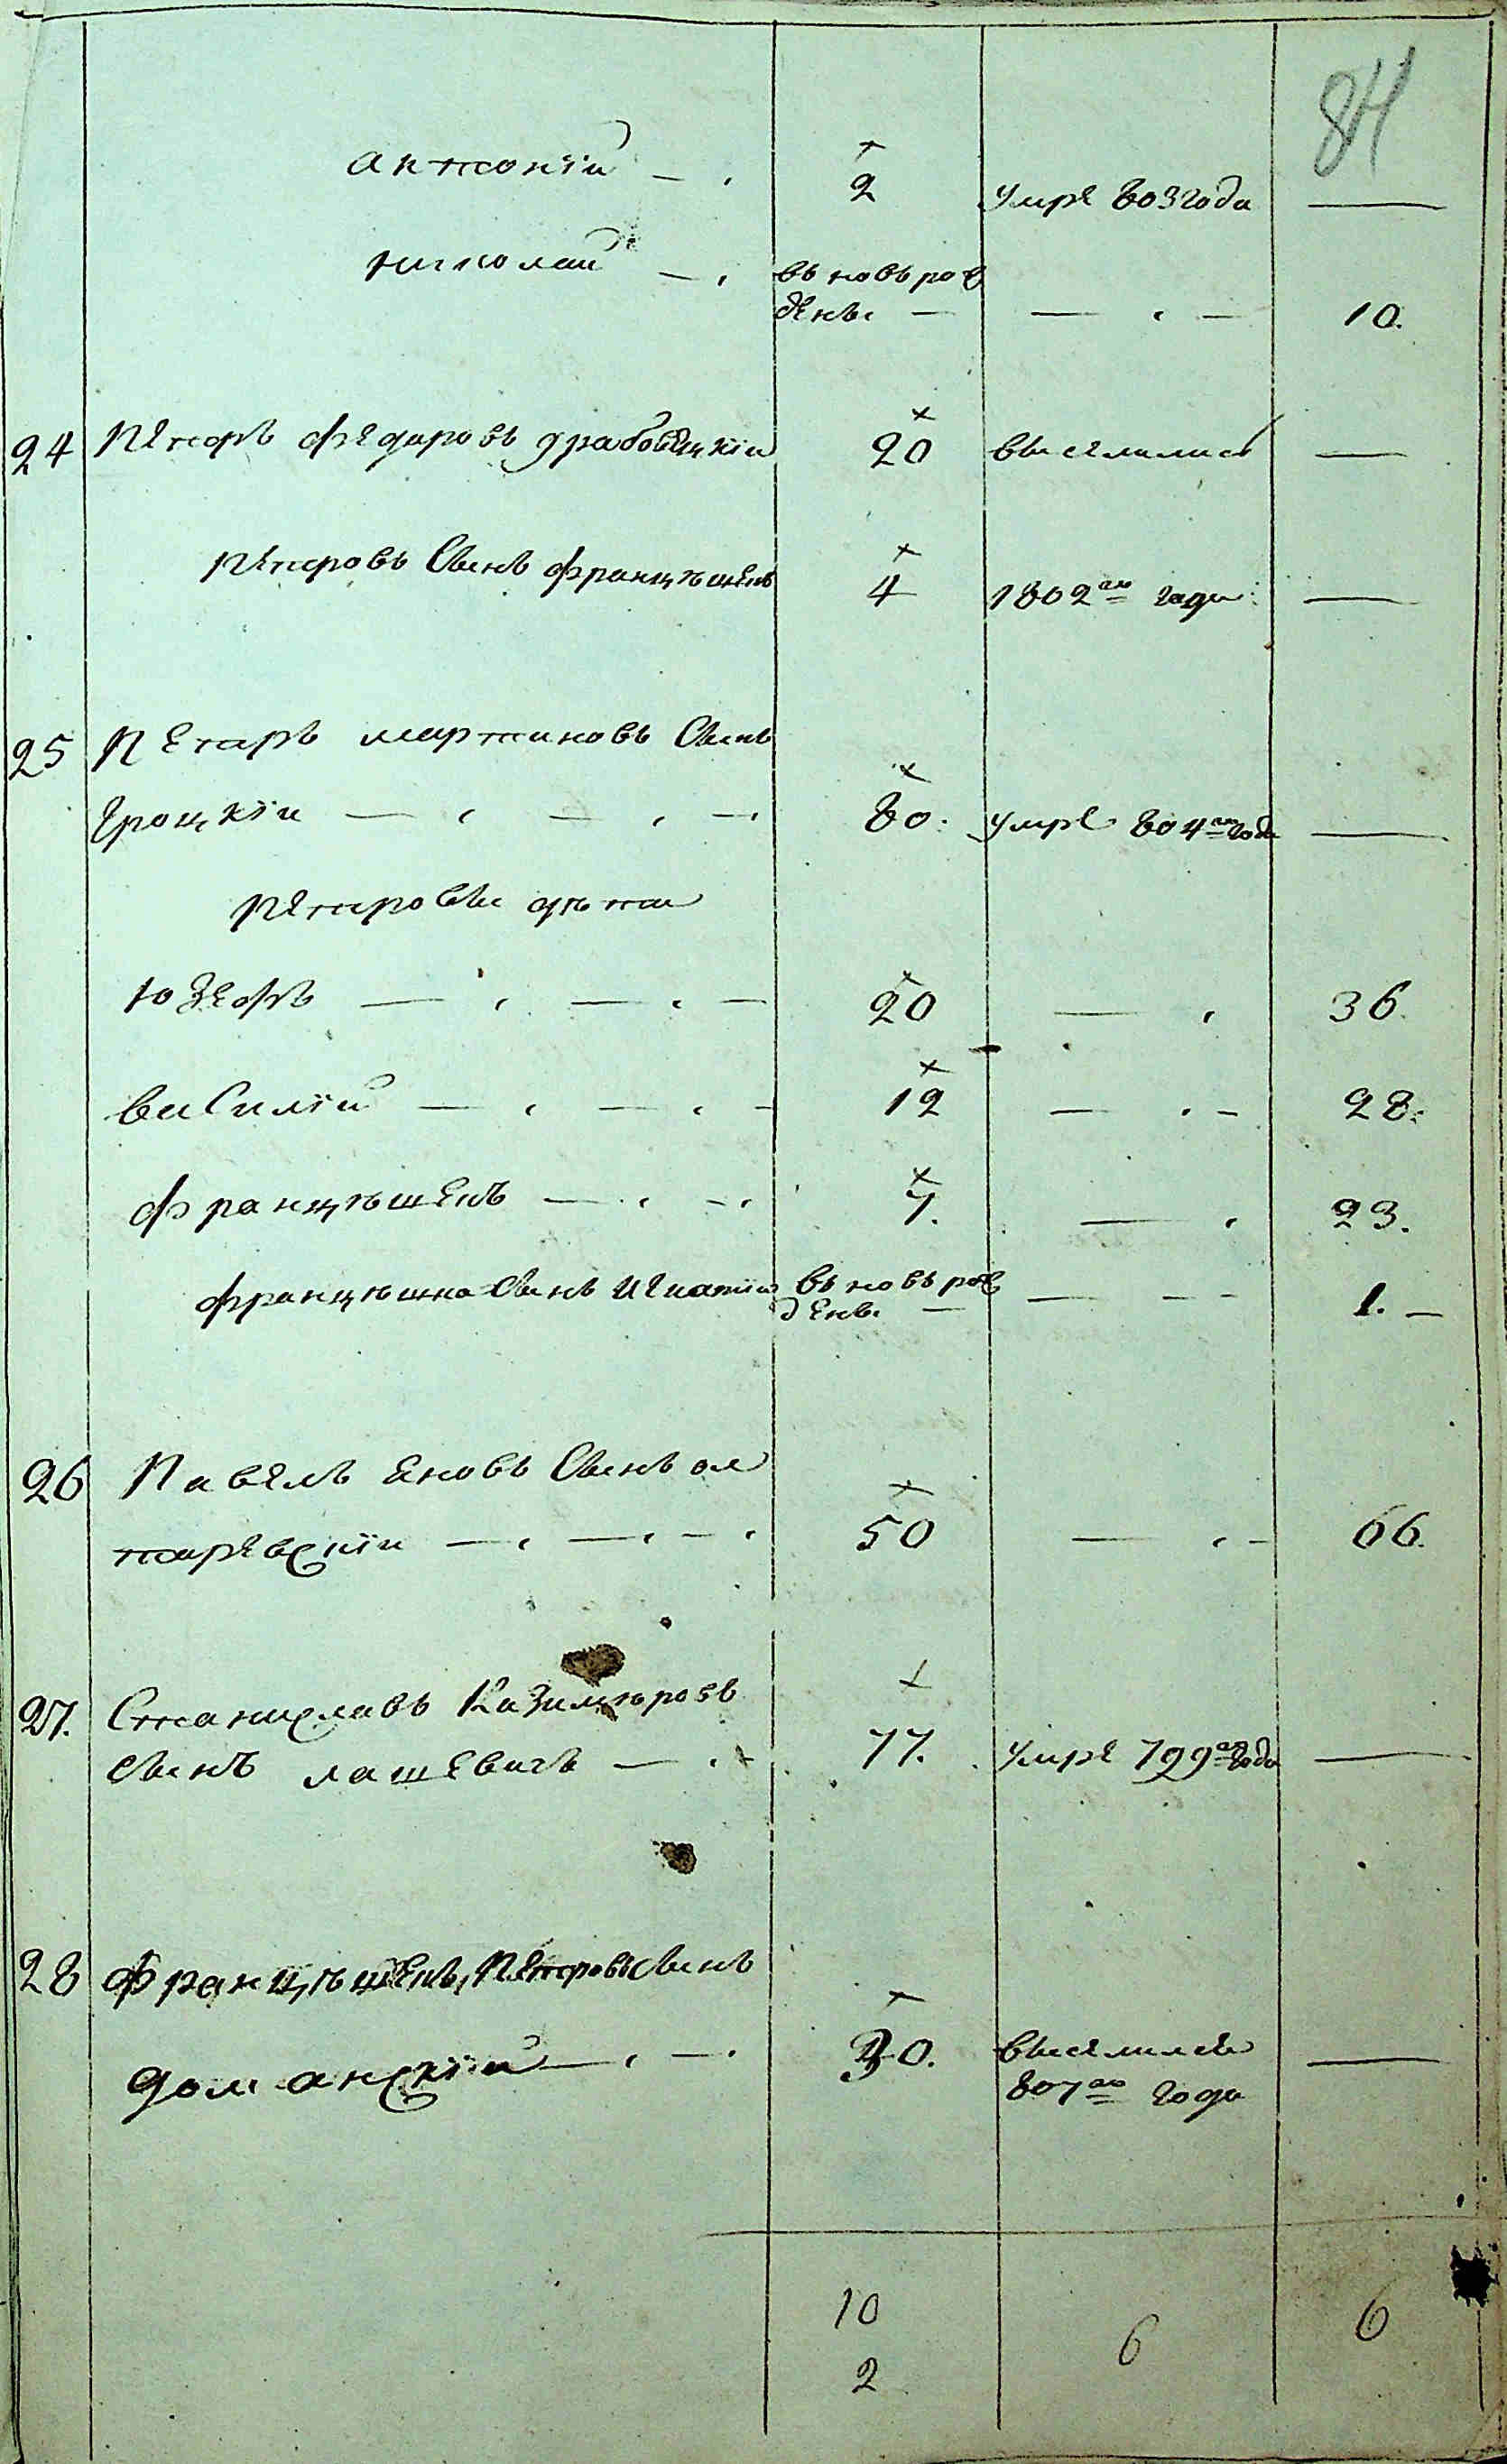 84
Антоній — 2 умре 803 года —
Николай — вьновьрож
денъ — — — 10.
24 Петръ Федаровь Драбовицкіи 20 выселились —
Петровь Сынъ Францѣшекъ 4 1802го года: —
25 Петаръ Мартиновь Сынъ
Ероцкіи — — — 80. умре 804го года —
Петровы дѣти
Юзефъ — — — 20 — 36.
Василій — — — 12 — — 28.
Францѣшекъ — — 7. — 23.
Францѣшка Сынъ Игнатіи вьновьрож
денъ — — — — 1. —
26 Павелъ Яновь Сынъ ол
таревскіи — — — 50 — — 66.
27. Станиславь Казимѣровь
Сынъ Лашевичъ — 77. умре 799го года —
28 Францѣшекъ Петровь Сынъ
Доманскій — — 30. выселился —
807го года
10 6 6
2